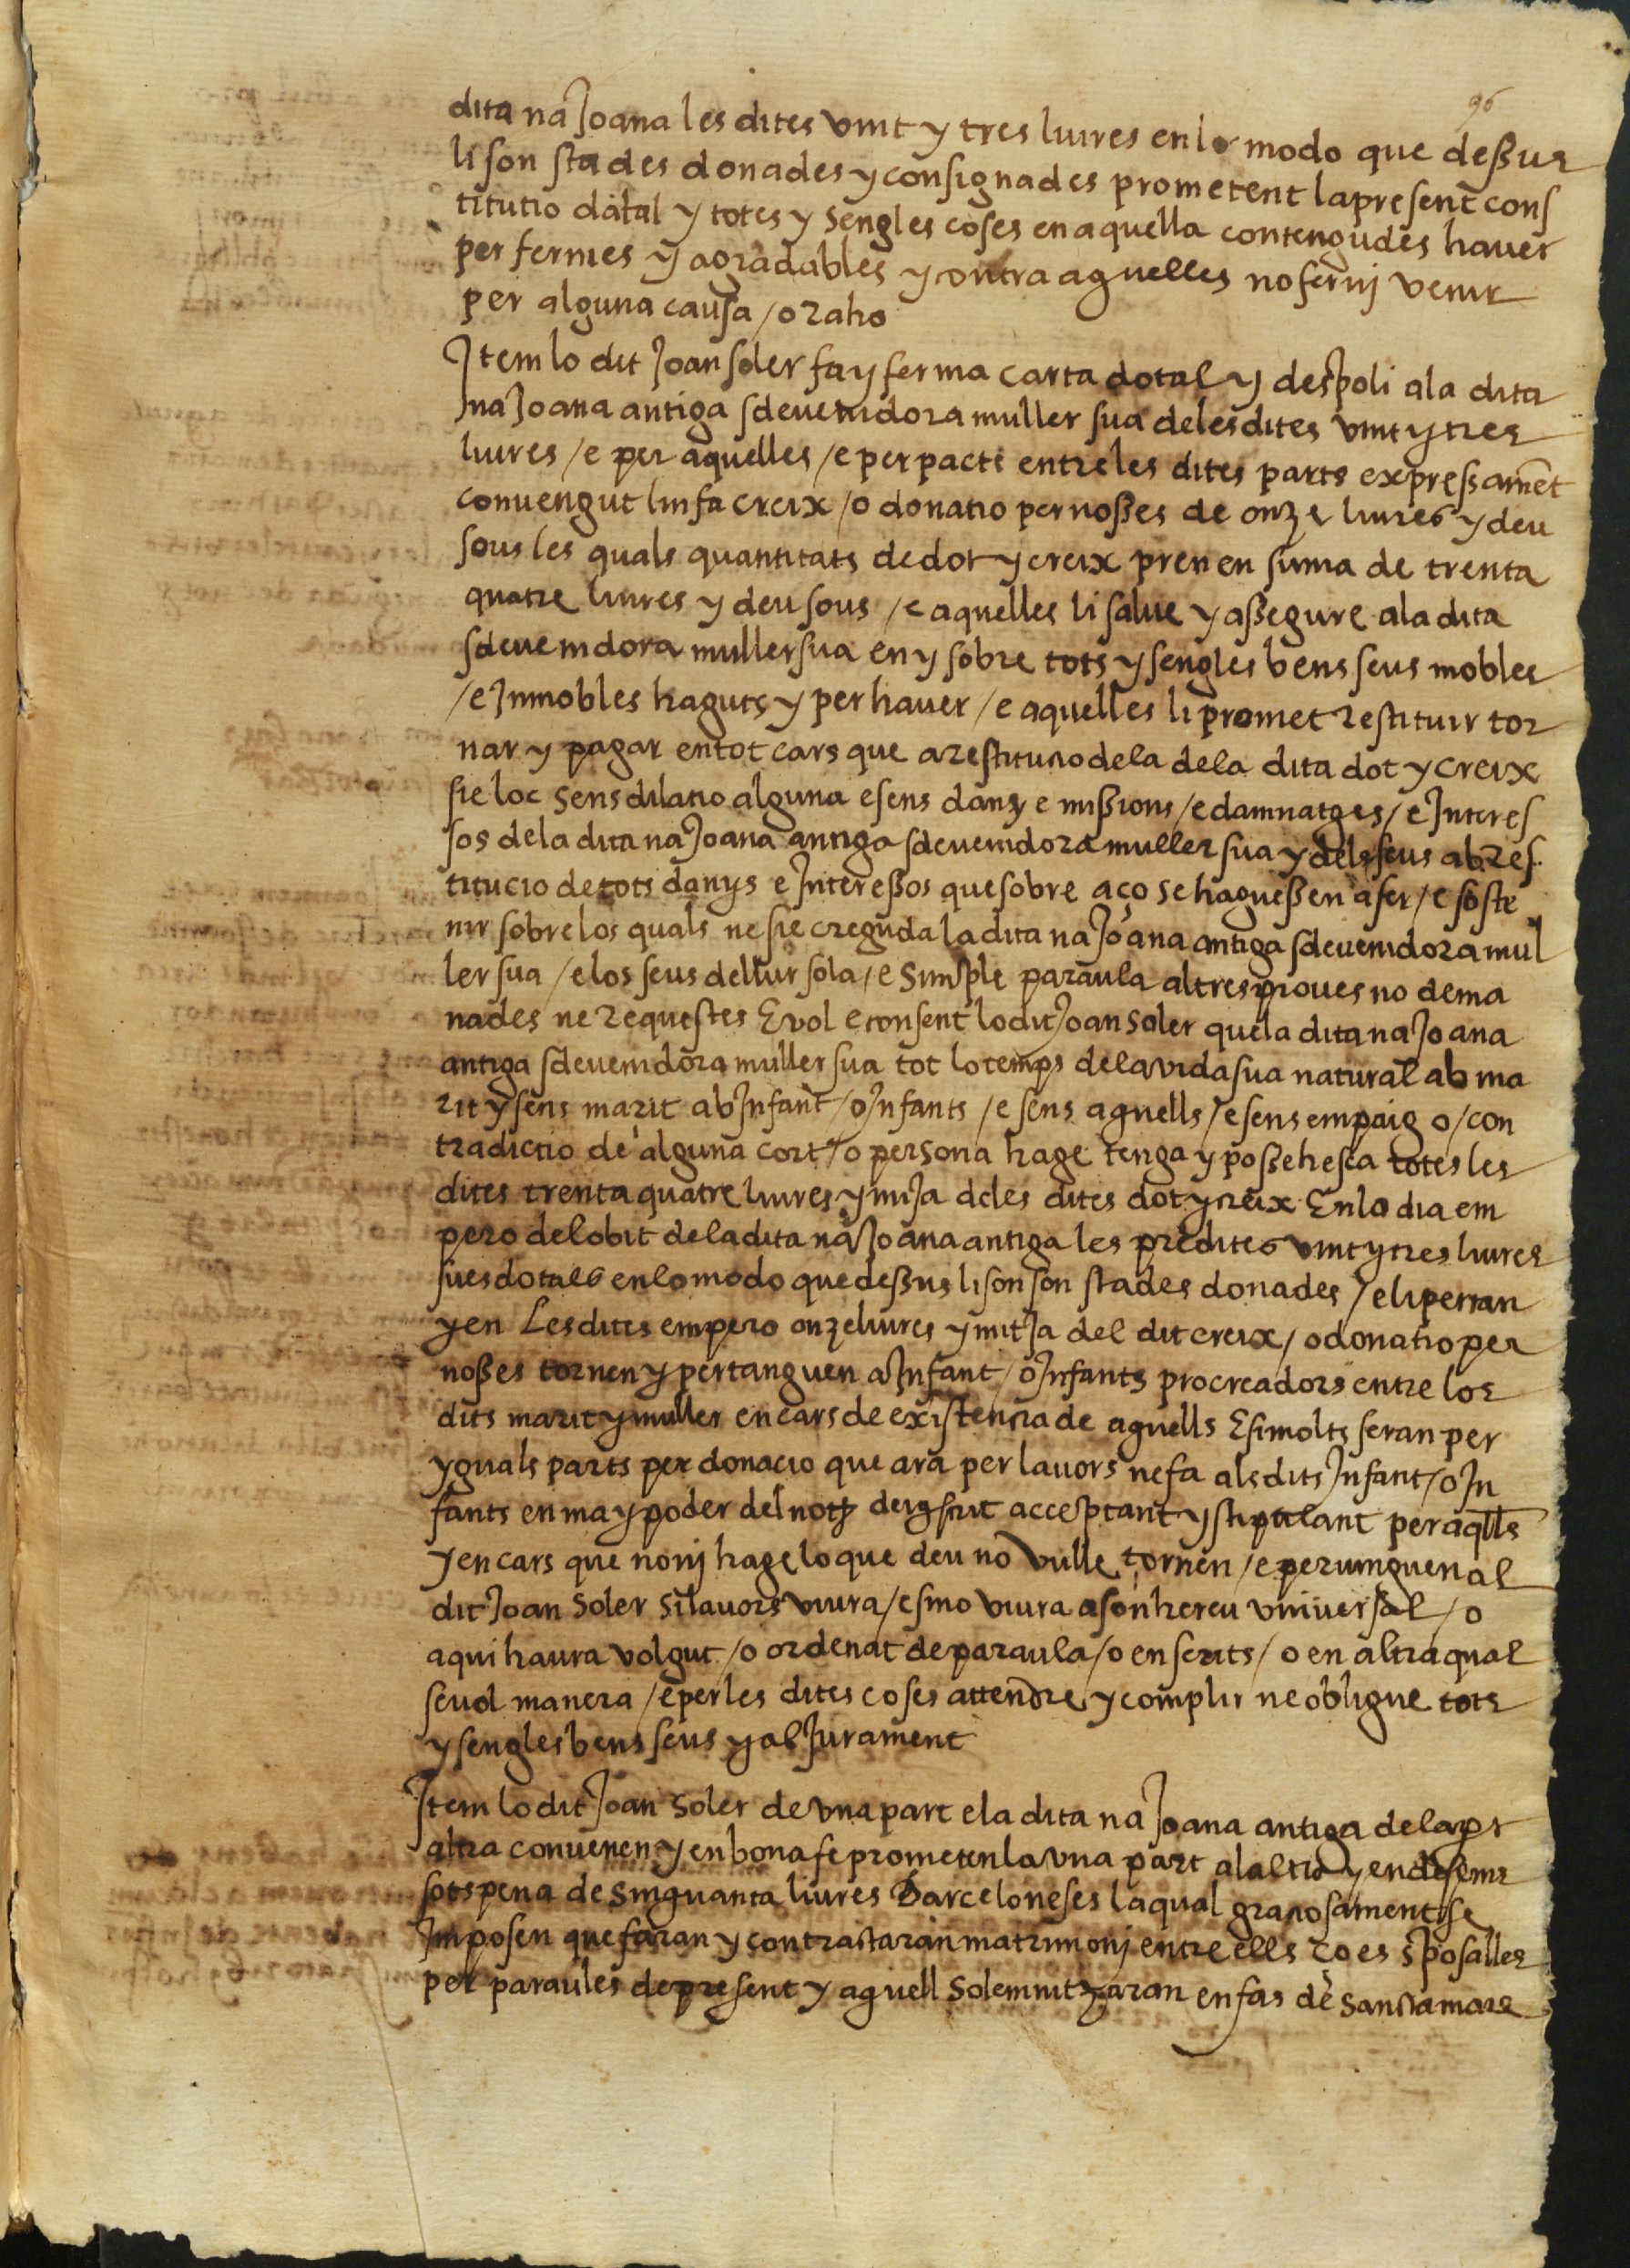 96
dita na Joana les dites vint y tres liures en lo modo que dessus
li son stades donades y consignades prometent la present cons
titutio datal y totes y sengles coses en aquella contengudes hauer
per fermes y agradables y contra aquelles no fer nj venir
per alguna causa / o raho
Item lo dit Joan soler fa y ferma carta dotal y despoli a la dita
na Joana antiga sdeuenidora muller sua de les dites vint y tres
liures / e per aquelles / e per pacte entre les dites parts expressamēt
conuengut lin fa creix / o donatio per nosses de onze liures y deu
sous les quals quantitats de dot y creix prenen suma de trenta
quatre liures y deu sous / e aquelles li salue y assegure a la dita
sdeuenidora muller sua en y sobre tots y sengles bens seus mobles
/ e Inmobles haguts y per hauer / e aquelles li promet restituir tor
nar y pagar en tot cars que a restitutio de la de la dita dot y creix
sie loc sens dilatio alguna e sens dany e missions / e damnatges / e Interes
sos de la dita na Joana antiga sdeuenidora muller sua y dels seus ab res
titucio de tots danys e Interessos que sobre aço se haguessen a fer / e soste
nir sobre los quals ne sie creguda la dita na Joana antiga sdeuenidora mul
ler sua / e los seus de llur sola / e simple paraula altres proues no dema
nades ne requestes E vol e consent lo dit Joan soler que la dita na Joana
antiga sdeuenidora muller sua tot lo temps de la vida sua natural ab ma
rit y sens marit ab Infant / o Infants / e sens aquells / e sens empaig o / con
tradictio de alguna cort / o persona hage tenga y possehesca totes les
dites trenta quatre liures y mija de les dites dot y creix En lo dia em
pero del obit de la dita na Joana antiga les predites vint y tres liures
sues dotals en lo modo que dessus li son son stades donades / e li pertan
yen Les dites empero onze liures y mitja del dit creix / o donatio per
nosses tornen y pertanguen a Infant / o Infants procreadors entre los
dits marit y muller en cars de existencia de aquells E si molts seran per
yguals parts per donacio que ara per lauors ne fa als dits Infant / o In
fants en ma y poder del not deius scrit acceptant y stipulant per aqlls
y en cars que non j hage lo que deu no vulle tornen / e peruinguen al
dit Joan soler si lauors viura / e sino viura a son hereu vniuersal / o
a qui haura volgut / o ordenat de paraula / o en scrits / o en altra qual
seuol manera / e per les dites coses attendre y complir ne obligue tots
y sengles bens seus y ab Jurament
Item lo dit Joan soler de vna part e la dita na Joana antiga de la pt
altra conuenen y en bona fe prometen la vna part a laltra y endesems
sots pena de sinquanta liures Barceloneses la qual graciosament se
Imposen que faran y contractaran matrimonj entre ells ço es sposalles
per paraules de present y aquell solemnitzaran en fas de sancta mare